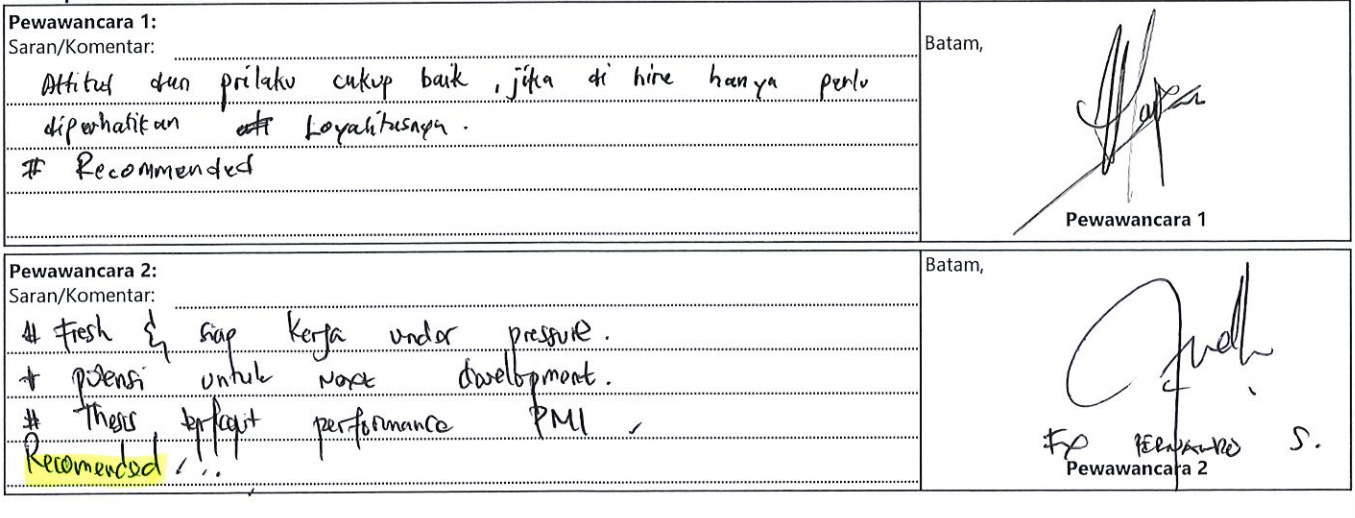 Pewawancara 1:
Saran/Komentar:
Attitud dan prilaku cukup baik, jika di hire hanya perlu
diperhatikan Loyalitasnya.
# Recommended
Batam,
Pewawancara 1
Pewawancara 2:
Saran/Komentar:
# Fresh & siap kerja under pressure.
# potensi untuk Next development.
# Thesis terkait performance PMI
Recomended !!!
Batam,
FX FERNANDO S.
Pewawancara 2